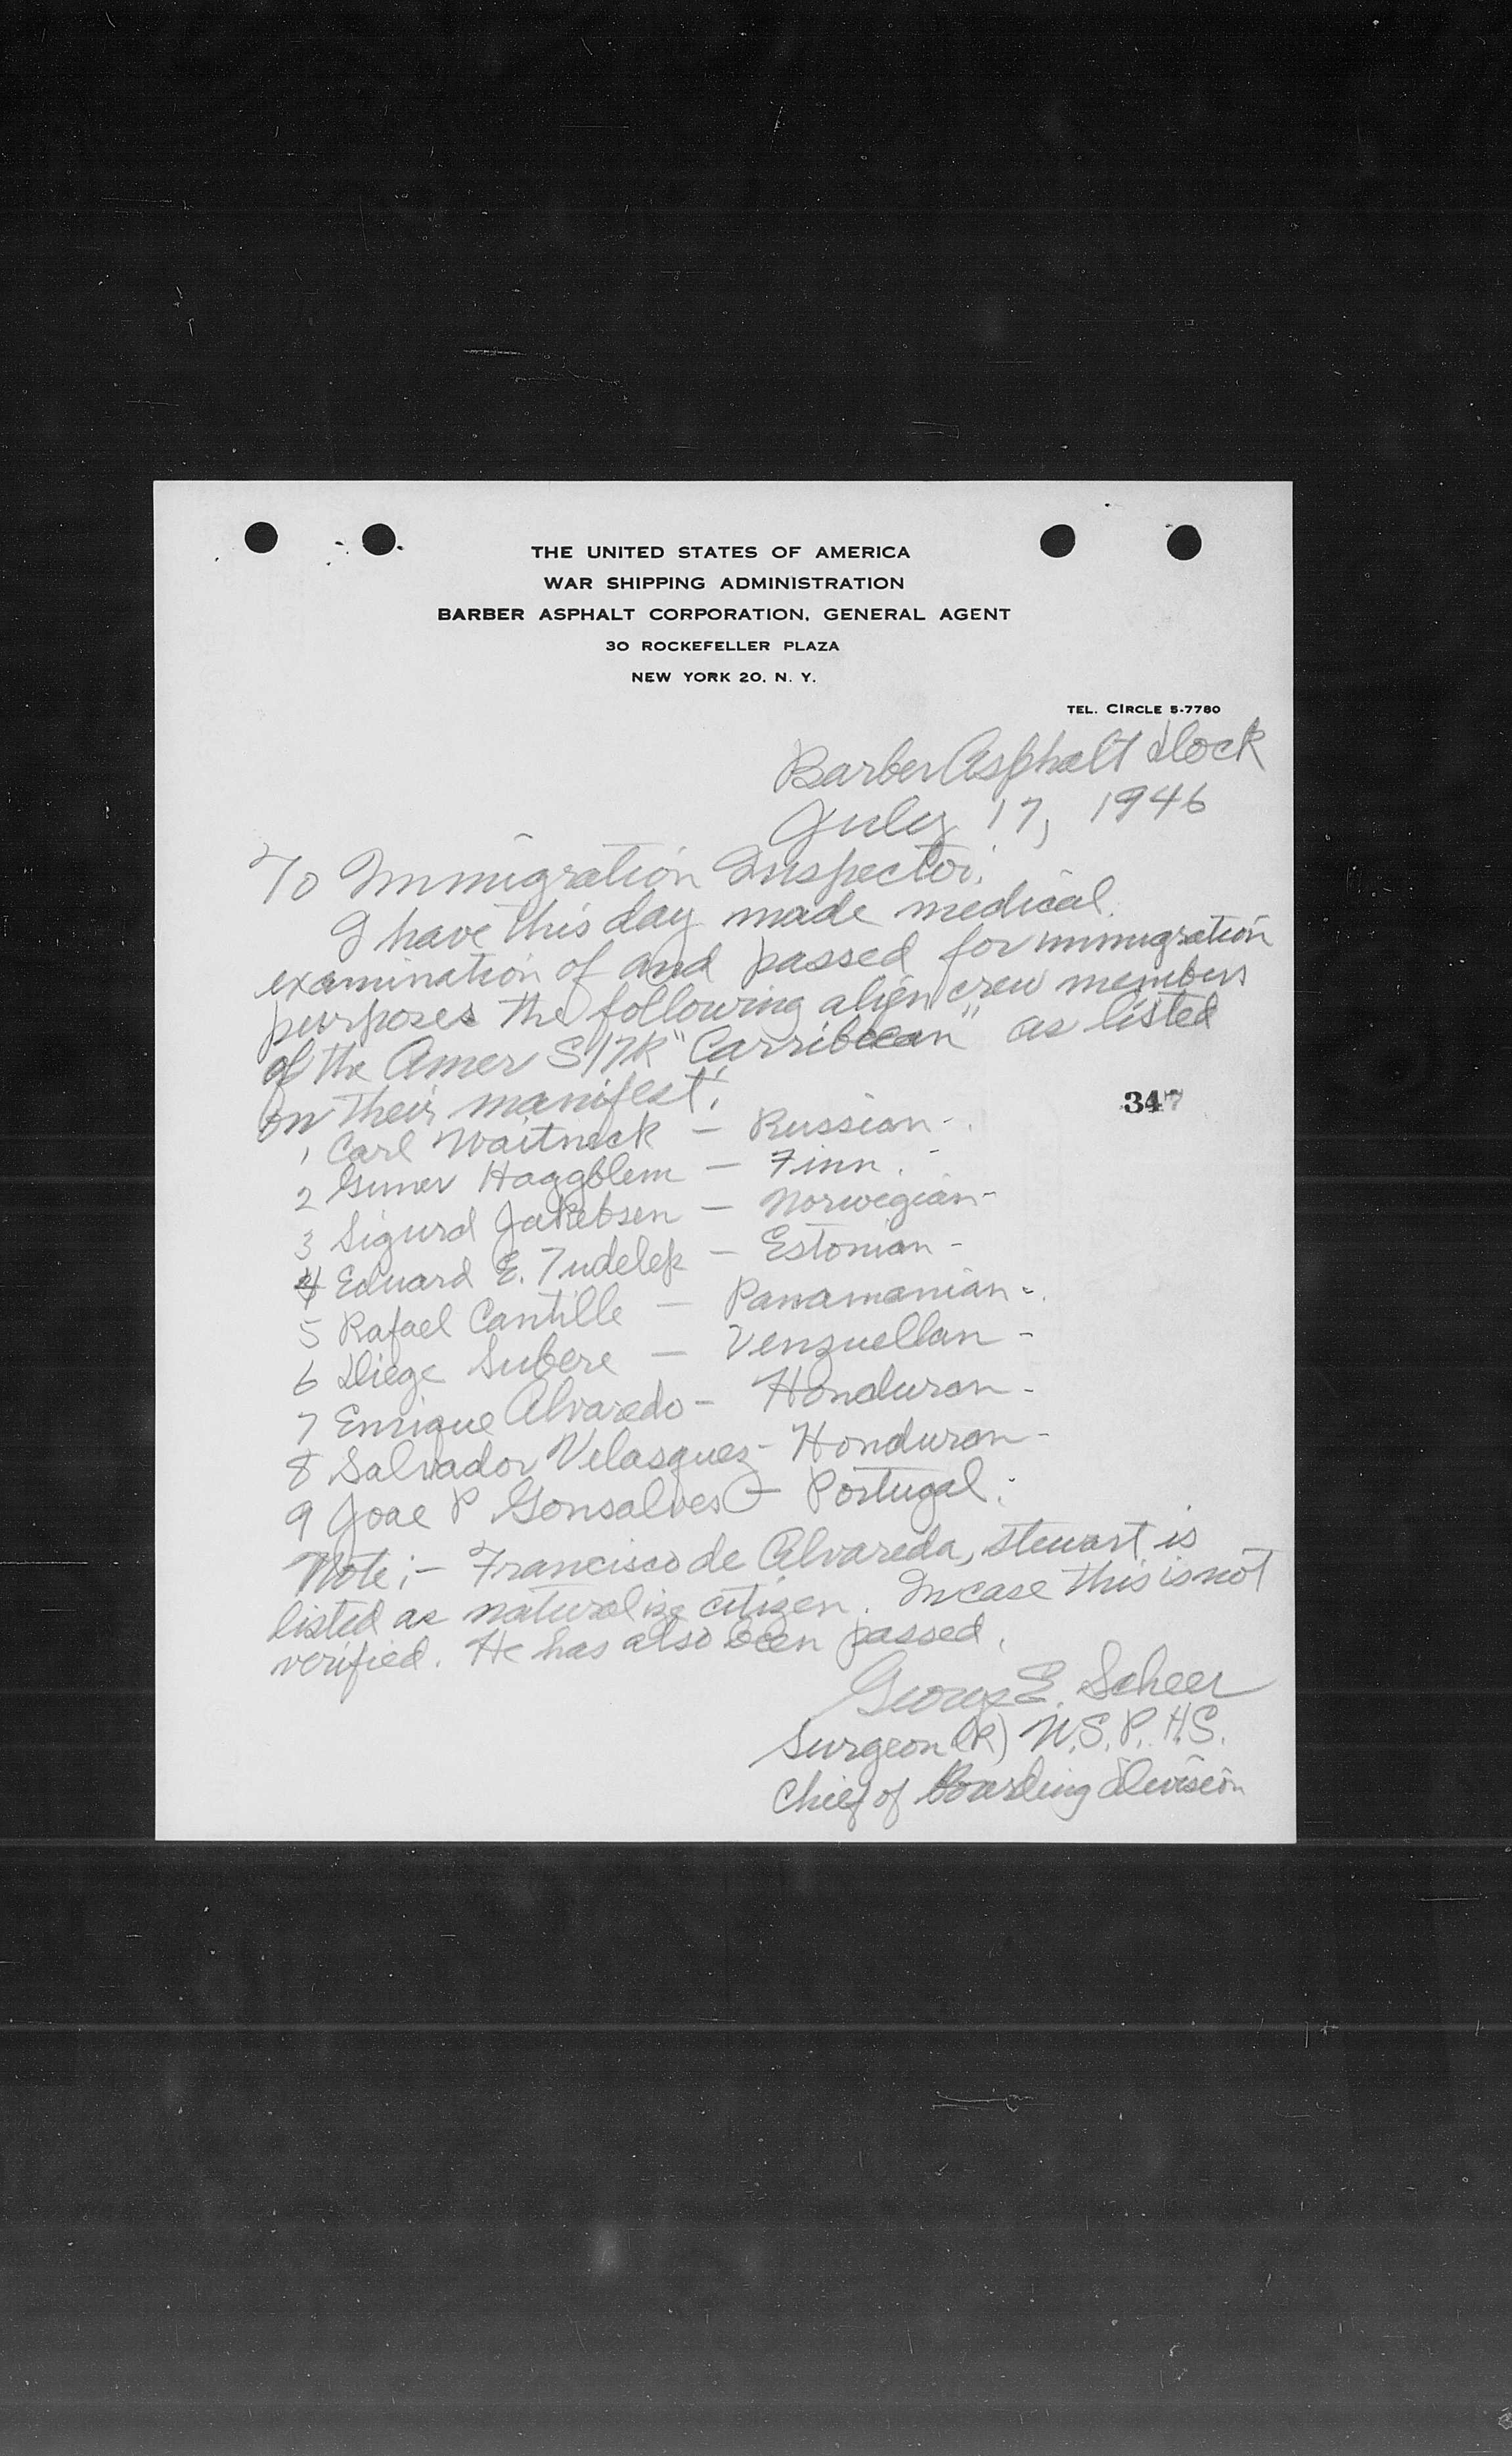 THE UNITED STATES OF AMERICA
WAR SHIPPING ADMINISTRATION
BARBER ASPHALT CORPORATION, GENERAL AGENT
30 ROCKEFELLER PLAZA
NEW YORK 20, N. Y.
TEL. CIRCLE 5-7780
Barber Asphalt Dock
July 17, 1946
To Immigration Inspector:
I have this day made medical
examination of and passed for immigration
purposes the following alien crew members
of the Amer S/TK "Carribbean" as listed
on their manifest:
347
1 Carl Waitneck — Russian -
2 Guner Haggblem — Finn. -
3 Sigurd Jakebsen — Norwegian -
4 Eduard E. Tudelep — Estonian -
5 Rafael Cantille — Panamanian -
6 Diege Subere — Venzuellan -
7 Enrique Alvaredo - Honduran -
8 Salvador Velasquez - Honduran -
9 Joae P Gonsalves - Portugal.
Note:- Francisco de Alvareda, stewart is
listed as naturalize citizen. In case this is not
verified. He has also been passed.
George E. Scheer
Surgeon (R) U.S.P.H.S.
Chief of Boarding Division